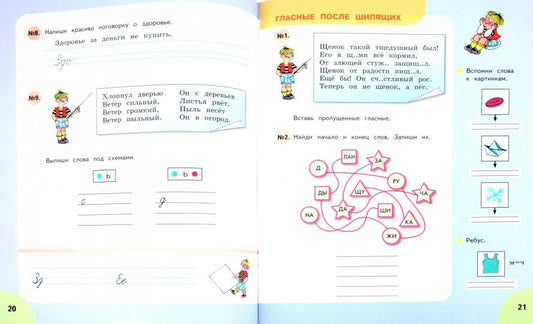 №8.
Напиши красиво поговорку о здоровье.
Здоровье за деньги не купить.
Здо
№9.
Хлопнул дверью
Ветер сильный,
Ветер громкий,
Ветер пыльный.
Он с деревьев
Листья рвёт,
Пыль несёт
Он в огород.
Выпиши слова под схемами.
ь
ь
о
д
Зд
Ео
20
ГЛАСНЫЕ ПОСЛЕ ШИПЯЩИХ
№1.
Щенок такой тщедушный был!
Его я щ..ми всё кормил,
От злющей стуж.. защищ..л.
Щенок от радости пищ..л.
Ещё бы! Он сч..стливый рос.
Теперь он не щенок, а пёс.
Вставь пропущенные гласные.
№2. Найди начало и конец слов. Запиши их.
Д
ПАН
ЗА
РУ
ДЫ
ЩУ
ЧА
НА
ДА
ШИ
КА
ЖИ
Вспомни слова
к картинкам.
Ребус.
21